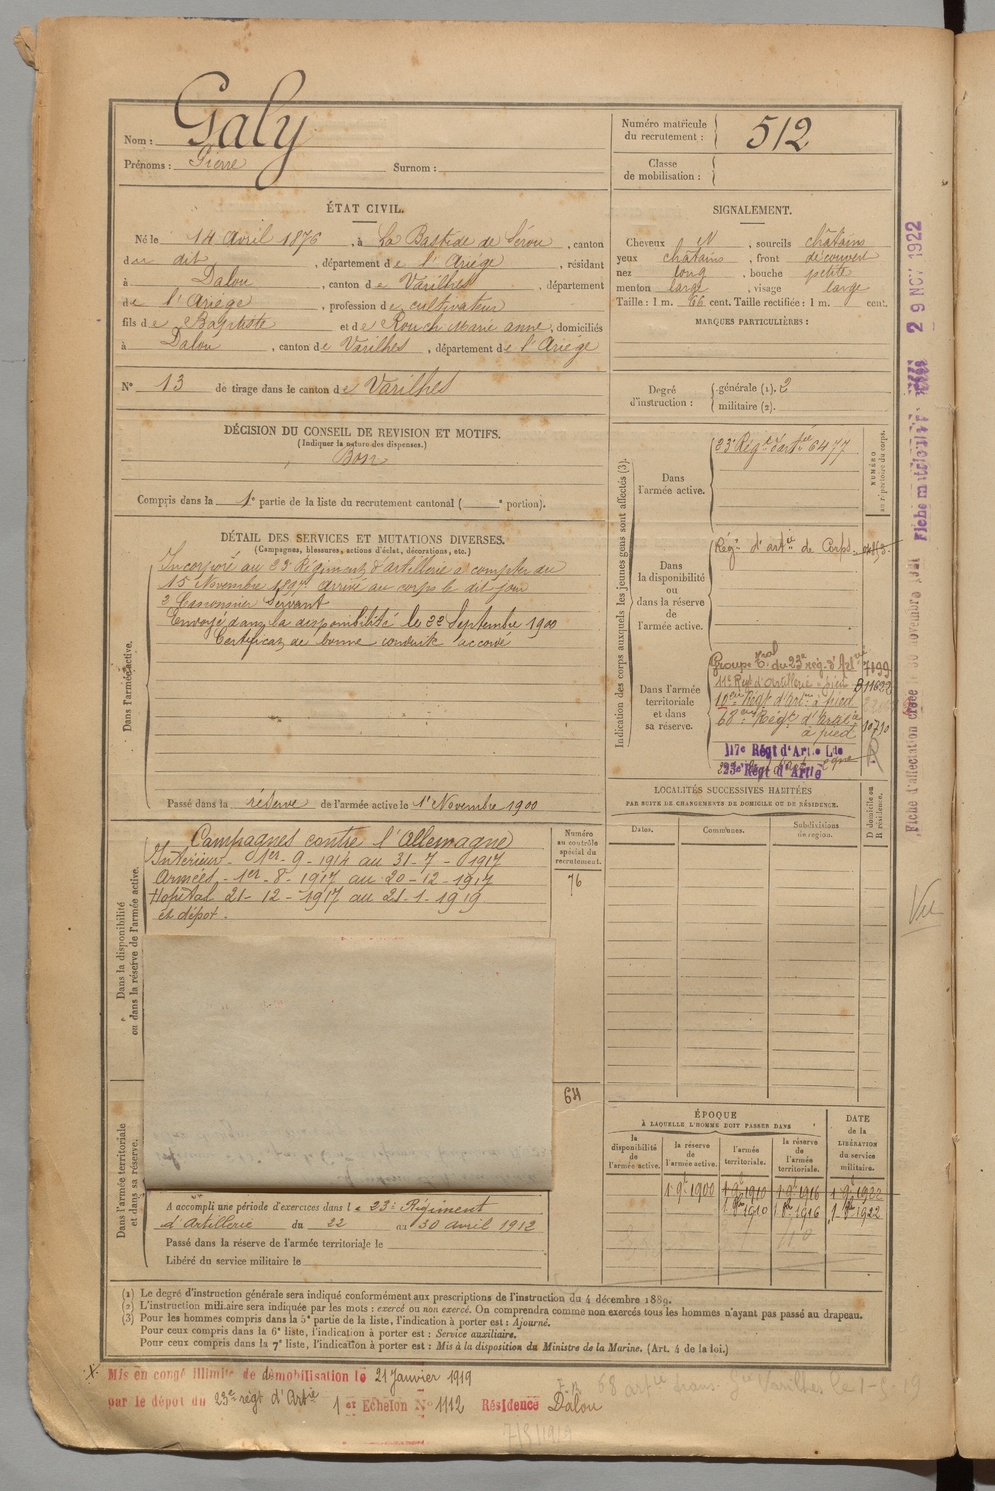 Nom : Galy
Prénoms : Pierre Surnom :
Numéro matricule du recrutement : 512
Classe de mobilisation :
ÉTAT CIVIL.
Né le 14 Avril 1876, à La Bastide de Sérou, canton
du dit, département de l'Ariège, résidant
à Dalou, canton de Varilhes, département
de l'Ariège, profession de cultivateur
fils de Baptiste et de Rouch Marie anne, domiciliés
à Dalou, canton de Varilhes, département de l'Ariège
N° 13 de tirage dans le canton de Varilhes
SIGNALEMENT.
Cheveux N, sourcils châtains
yeux châtains, front découvert
nez long, bouche petite
menton large, visage large
Taille : 1 m. 66 cent. Taille rectifiée : 1 m. cent.
MARQUES PARTICULIÈRES :
Degré d'instruction : générale (1). 2
militaire (2).
DÉCISION DU CONSEIL DE REVISION ET MOTIFS.
(Indiquer la nature des dispenses.)
Bon
Compris dans la 1e partie de la liste du recrutement cantonal ( e portion).
DÉTAIL DES SERVICES ET MUTATIONS DIVERSES.
(Campagnes, blessures, actions d'éclat, décorations, etc.)
Dans l'armée active.
Incorporé au 23e Régiment d'artillerie à compter du
15 Novembre 1897 arrivé au corps le dit jour
2e Canonnier Servant
Envoyé dans la disponibilité le 22 Septembre 1900
Certificat de bonne conduite accordé
Passé dans la réserve de l'armée active le 1er Novembre 1900
Indication des corps auxquels les jeunes gens sont affectés (3).
NUMÉRO au répertoire du corps.
Dans l'armée active.
23e Régt d'artie 6477
Dans la disponibilité ou dans la réserve de l'armée active.
Régt d'artie de Corps
Dans l'armée territoriale et dans sa réserve.
Groupe Tral du 23e rég. d'Artie 7199
11e Régt d'Artillerie à pied B 11622
10ème Régt d'Artie à pied
68ème Régt d'Artie à pied 10710
117e Régt d'Artie Lde
23e Régt d'Artie
LOCALITÉS SUCCESSIVES HABITÉES
PAR SUITE DE CHANGEMENTS DE DOMICILE OU DE RÉSIDENCE.
D domicile ou R résidence.
Dates. Communes. Subdivisions de région.
Dans la disponibilité ou dans la réserve de l'armée active.
Campagnes contre l'Allemagne
Intérieur - 1er - 9 - 1914 au 31 - 7 - 1917
Armées - 1er - 8 - 1917 au 20 - 12 - 1917
Hopital 21 - 12 - 1917 au 21 - 1 - 1919
et dépot.
Numéro au contrôle spécial du recrutement.
76
64
Dans l'armée territoriale et dans sa réserve.
A accompli une période d'exercices dans le 23e Régiment
d'Artillerie du 22 au 30 avril 1912
Passé dans la réserve de l'armée territoriale le
Libéré du service militaire le
ÉPOQUE
À LAQUELLE L'HOMME DOIT PASSER DANS
la disponibilité de l'armée active. la réserve de l'armée active. l'armée territoriale. la réserve de l'armée territoriale.
DATE de la LIBÉRATION du service militaire.
1 9e 1900 1 9e 1910 1 9e 1916 1 9e 1922
1 8bre 1910 1 8bre 1916 1 8bre 1922
(1) Le degré d'instruction générale sera indiqué conformément aux prescriptions de l'instruction du 4 décembre 1889.
(2) L'instruction militaire sera indiquée par les mots : exercé ou non exercé. On comprendra comme non exercés tous les hommes n'ayant pas passé au drapeau.
(3) Pour les hommes compris dans la 5e partie de la liste, l'indication à porter est : Ajourné.
Pour ceux compris dans la 6e liste, l'indication à porter est : Service auxiliaire.
Pour ceux compris dans la 7e liste, l'indication à porter est : Mis à la disposition du Ministre de la Marine. (Art. 4 de la loi.)
Mis en congé illimité de démobilisation le 21 Janvier 1919
par le dépot du 23e régt d'Artie 1er Echelon N° 1112 Résidence Dalou
68 artie trans. Gie Varilhes le
7/8/1919
29 NOV 1922
Vu